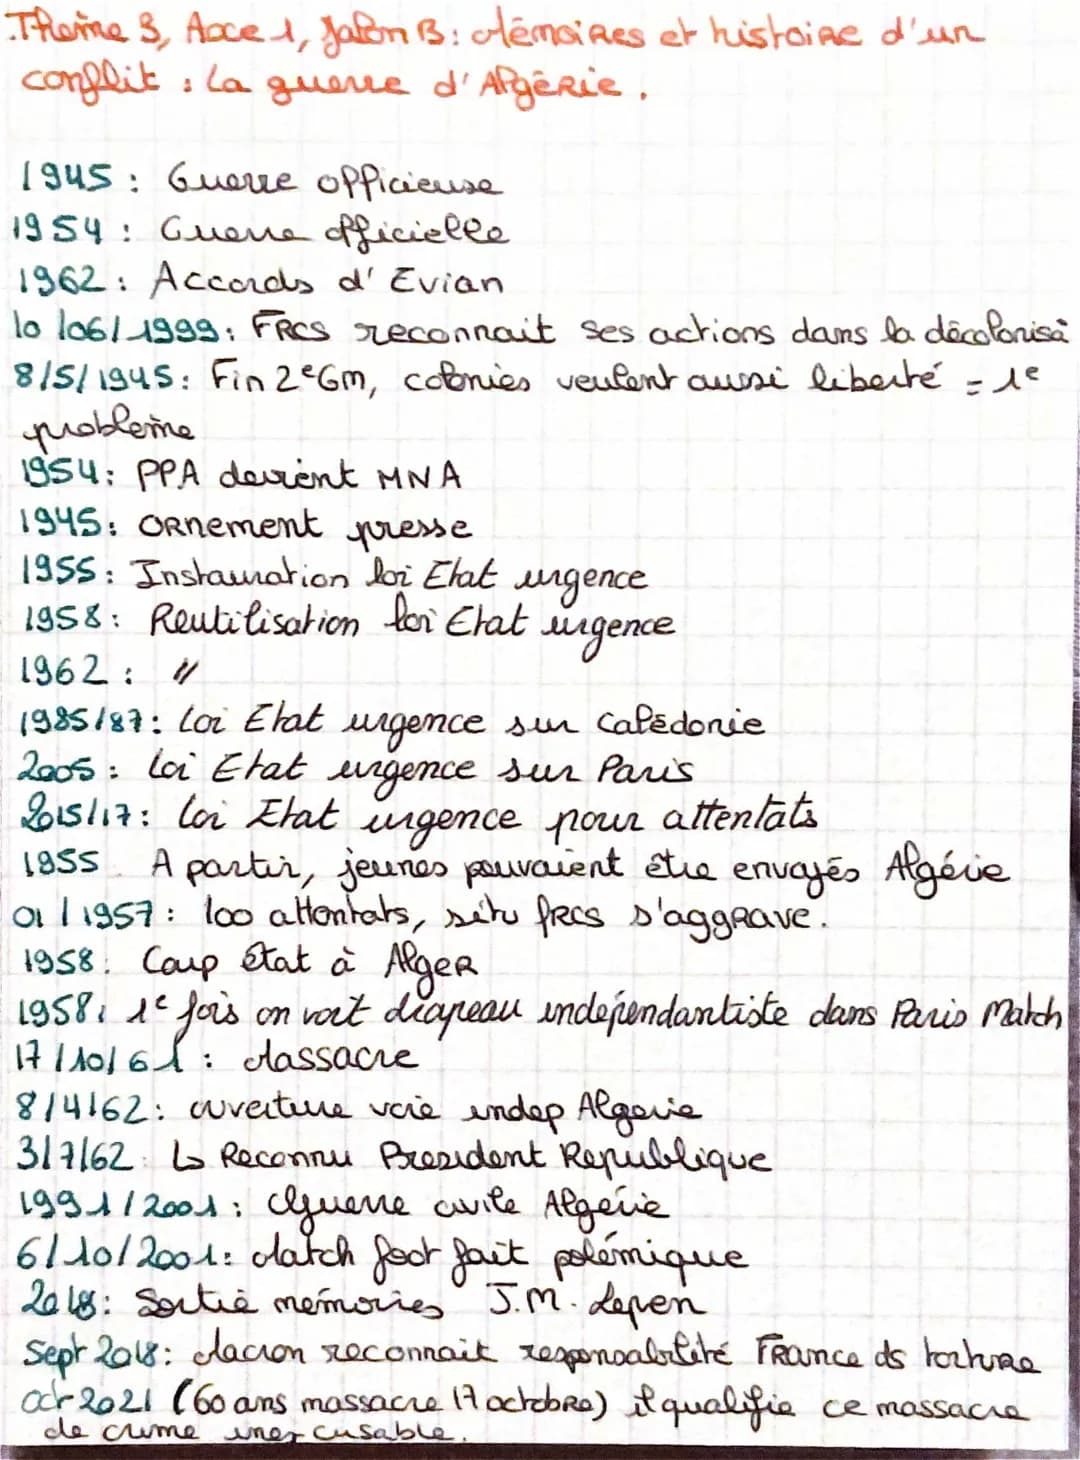 Thème 3, Axe 1, Jalon B : Mémoires et histoire d'un
conflit : la guerre d'Algérie.
1945 : Guerre officieuse
1954 : Guerre officielle
1962 : Accords d'Evian
10/06/1999 : FRCS reconnait ses actions dans la décolonisa°
8/5/1945 : Fin 2e Gm, colonies veulent aussi liberté = 1e
problème
1954 : PPA devient MNA
1945 : ORnement presse
1955 : Instauration loi Etat urgence
1958 : Reutilisation loi Etat urgence
1962 : //
1985/87 : Loi Etat urgence sur Calédonie
2005 : loi Etat urgence sur Paris
2015/17 : loi Etat urgence pour attentats
1955 A partir, jeunes pouvaient être envoyés Algérie
01/1957 : 100 attentats, situ frcs s'aggrave.
1958 : Coup état à Alger
1958 : 1e fois on voit drapeau indépendantiste dans Paris Match
17/10/61 : Massacre
8/4/62 : ouverture voie indep Algerie
3/7/62 : ↳ Reconnu President Republique
1991/2001 : Guerre civile Algérie
6/10/2001 : Match foot fait polémique
2018 : Sortie mémoires J.M. Lepen
Sept 2018 : Macron reconnait responsabilité France ds torture
oct 2021 (60 ans massacre 17 octobre) il qualifie ce massacre
de crime inexcusable.